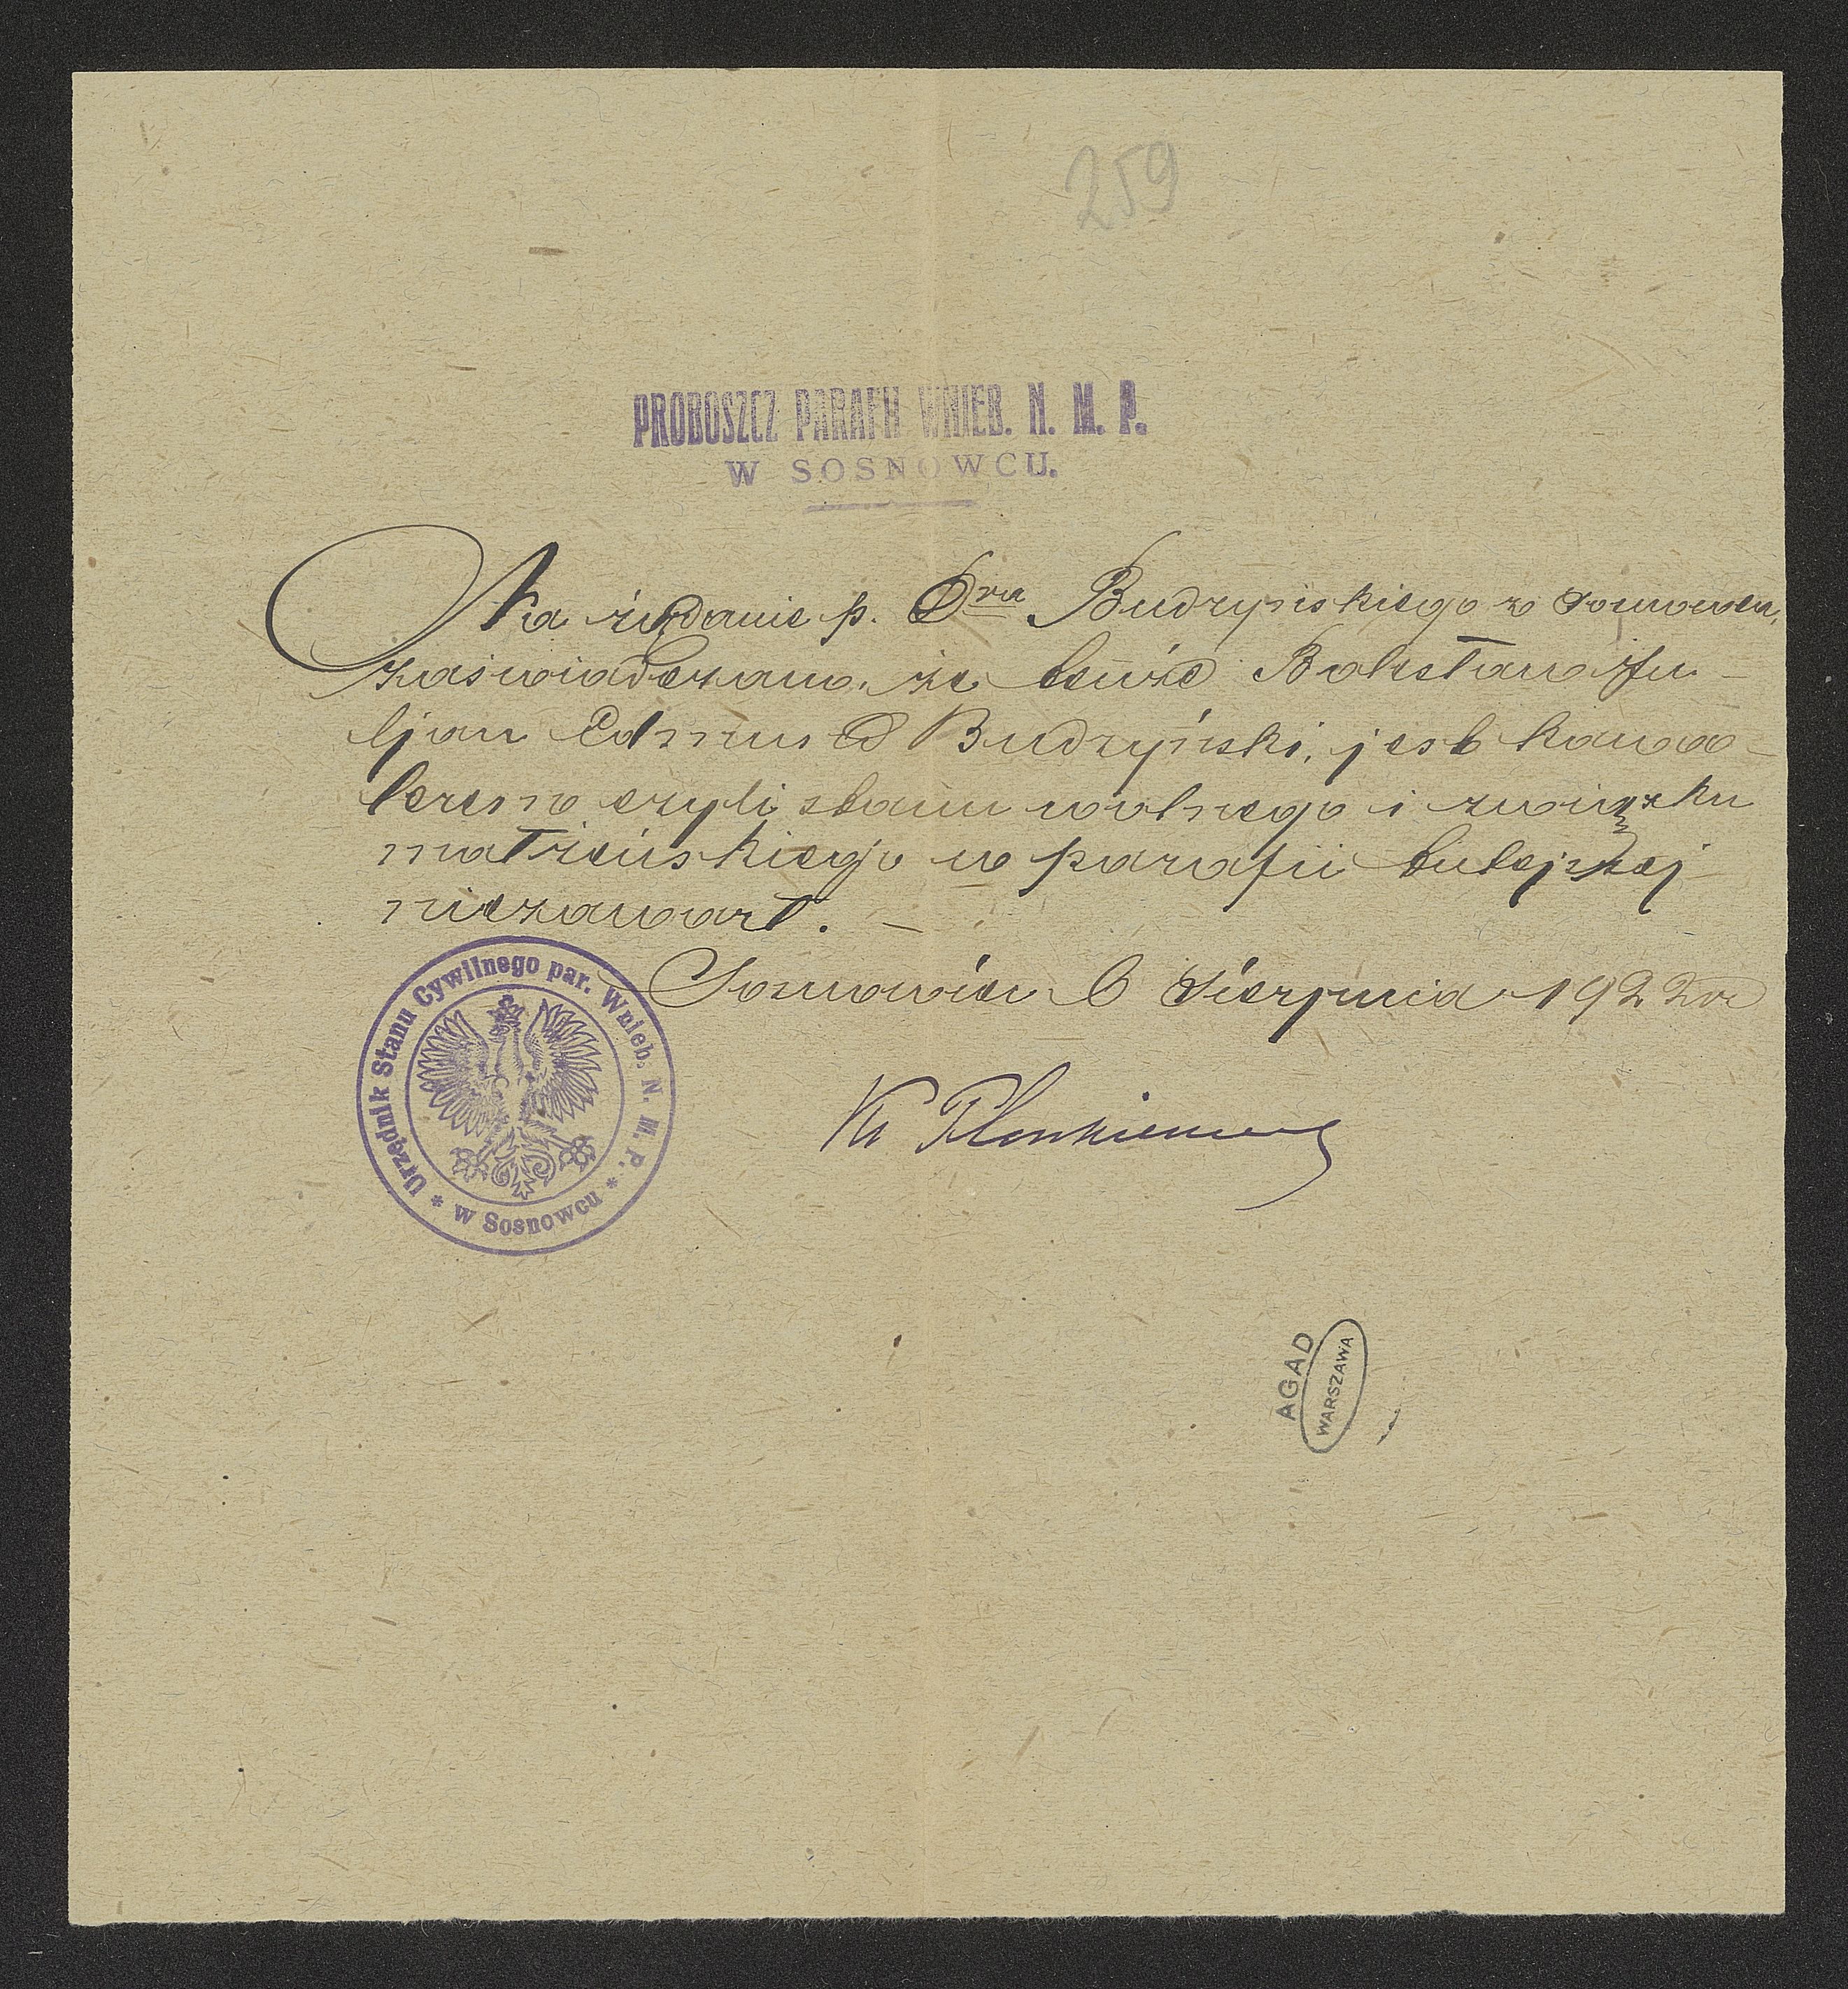 259
PROBOSZCZ PARAFII WNIEB. N. M. P.
W SOSNOWCU.
Na żądanie p. Dra Budzyńskiego z Sosnowca,
zaświadczam, że tenże Bolesław Ju-
ljan Edmund Budzyński, jest kawa-
lerem czyli stanu wolnego i związku
małżeńskiego w parafii tutejszej
niezawarł. —
Sosnowiec 6 Sierpnia 1922 r
Urzędnik Stanu Cywilnego par. Wnieb. N. M. P.
* w Sosnowcu *
AGAD
WARSZAWA